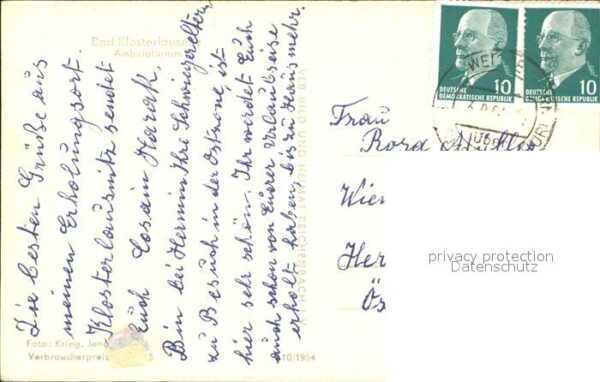 Bad Klosterlausnitz
Ambulatorium
Die besten Grüße aus
meinen Erholungsort.
Klosterlausnitz sendet
Euch
Bin bei Hermin Ihre Schwiegereltern
zu Besuch in der Ostzone, ist
hier sehr schön. Ihr werdet Euch
auch schon von Eurer Urlaubsreise
erholt haben, bis zu Hause mehr.
Foto: Krieg, Jena
Verbraucherpreis
10/1964
VEB BILD UND HEIMAT REICHENBACH I. V.
10
DEUTSCHE
DEMOKRATISCHE REPUBLIK
10
DEUTSCHE
DEMOKRATISCHE REPUBLIK
Frau
Wien
privacy protection
Datenschutz